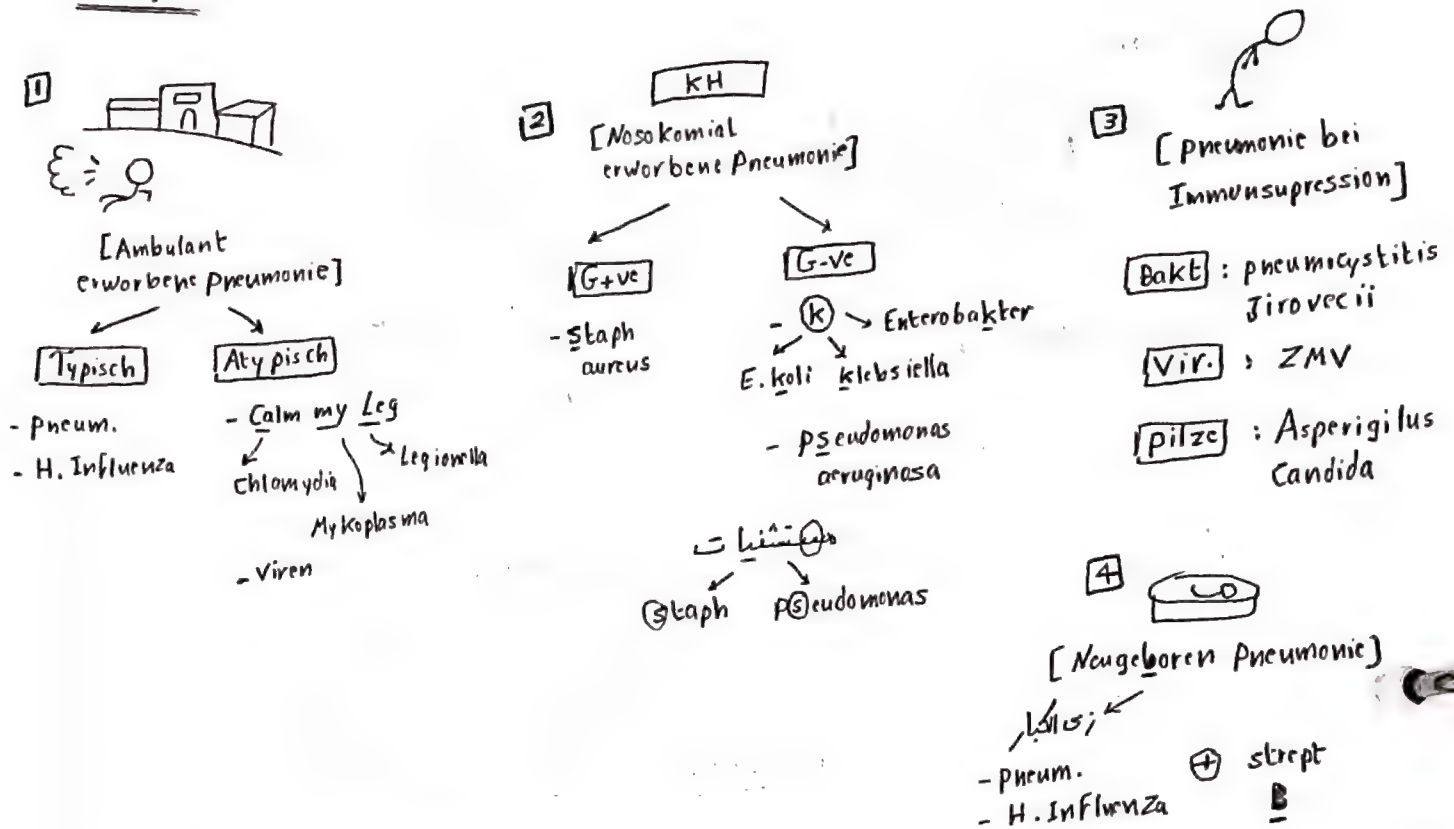 1
[Ambulant
erworbene Pneumonie]
Typisch
- Pneum.
- H. Influenza
Atypisch
- Calm my Leg
Chlamydia
Mykoplasma
Legionella
- Viren
2
KH
[Nosokomial
erworbene Pneumonie]
G+ve
- Staph
aureus
G-ve
- K
Enterobakter
E. koli
klebsiella
- Pseudomonas
aeruginosa
مستشفيات
Staph
Pseudomonas
3
[pneumonie bei
Immunsupression]
Bakt : pneumocystitis
Jirovecii
Vir. : ZMV
pilze : Asperigilus
Candida
4
[Neugeboren Pneumonie]
زى الكبار
- Pneum.
- H. Influenza
+ strept
B